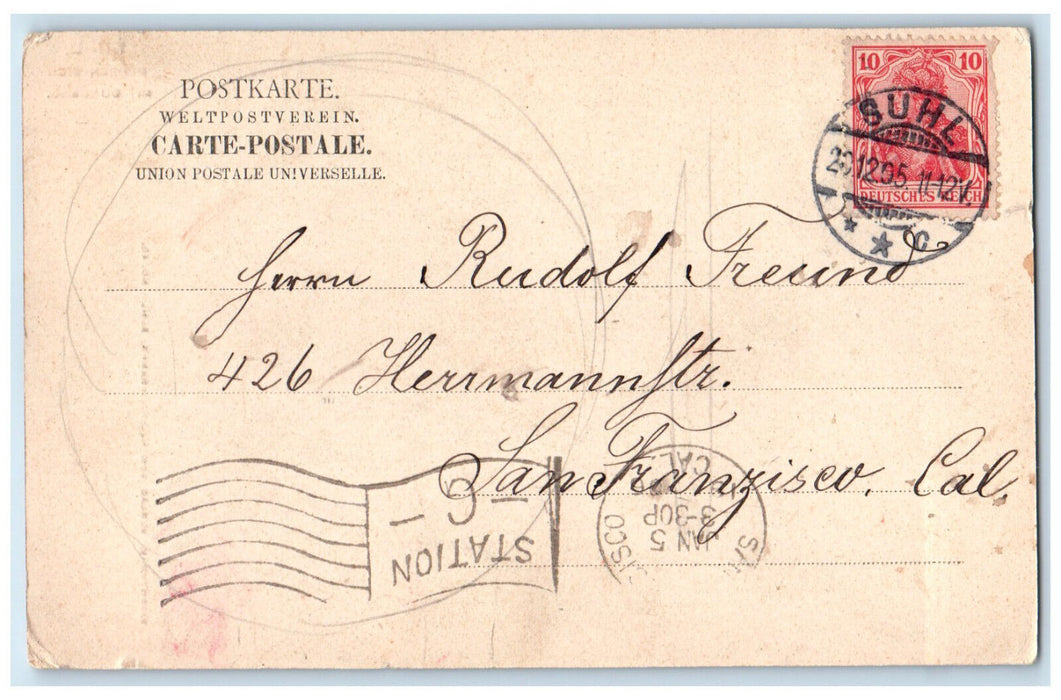 POSTKARTE.
WELTPOSTVEREIN.
CARTE-POSTALE.
UNION POSTALE UNIVERSELLE.
10 10
DEUTSCHES REICH
SUHL
12.05. 11-12V.
c
Herrn Rudolf Freund
426 Herrmannstr.
San Franzisco, Cal.
STATION
C
CAL.
3-30P
JAN 5